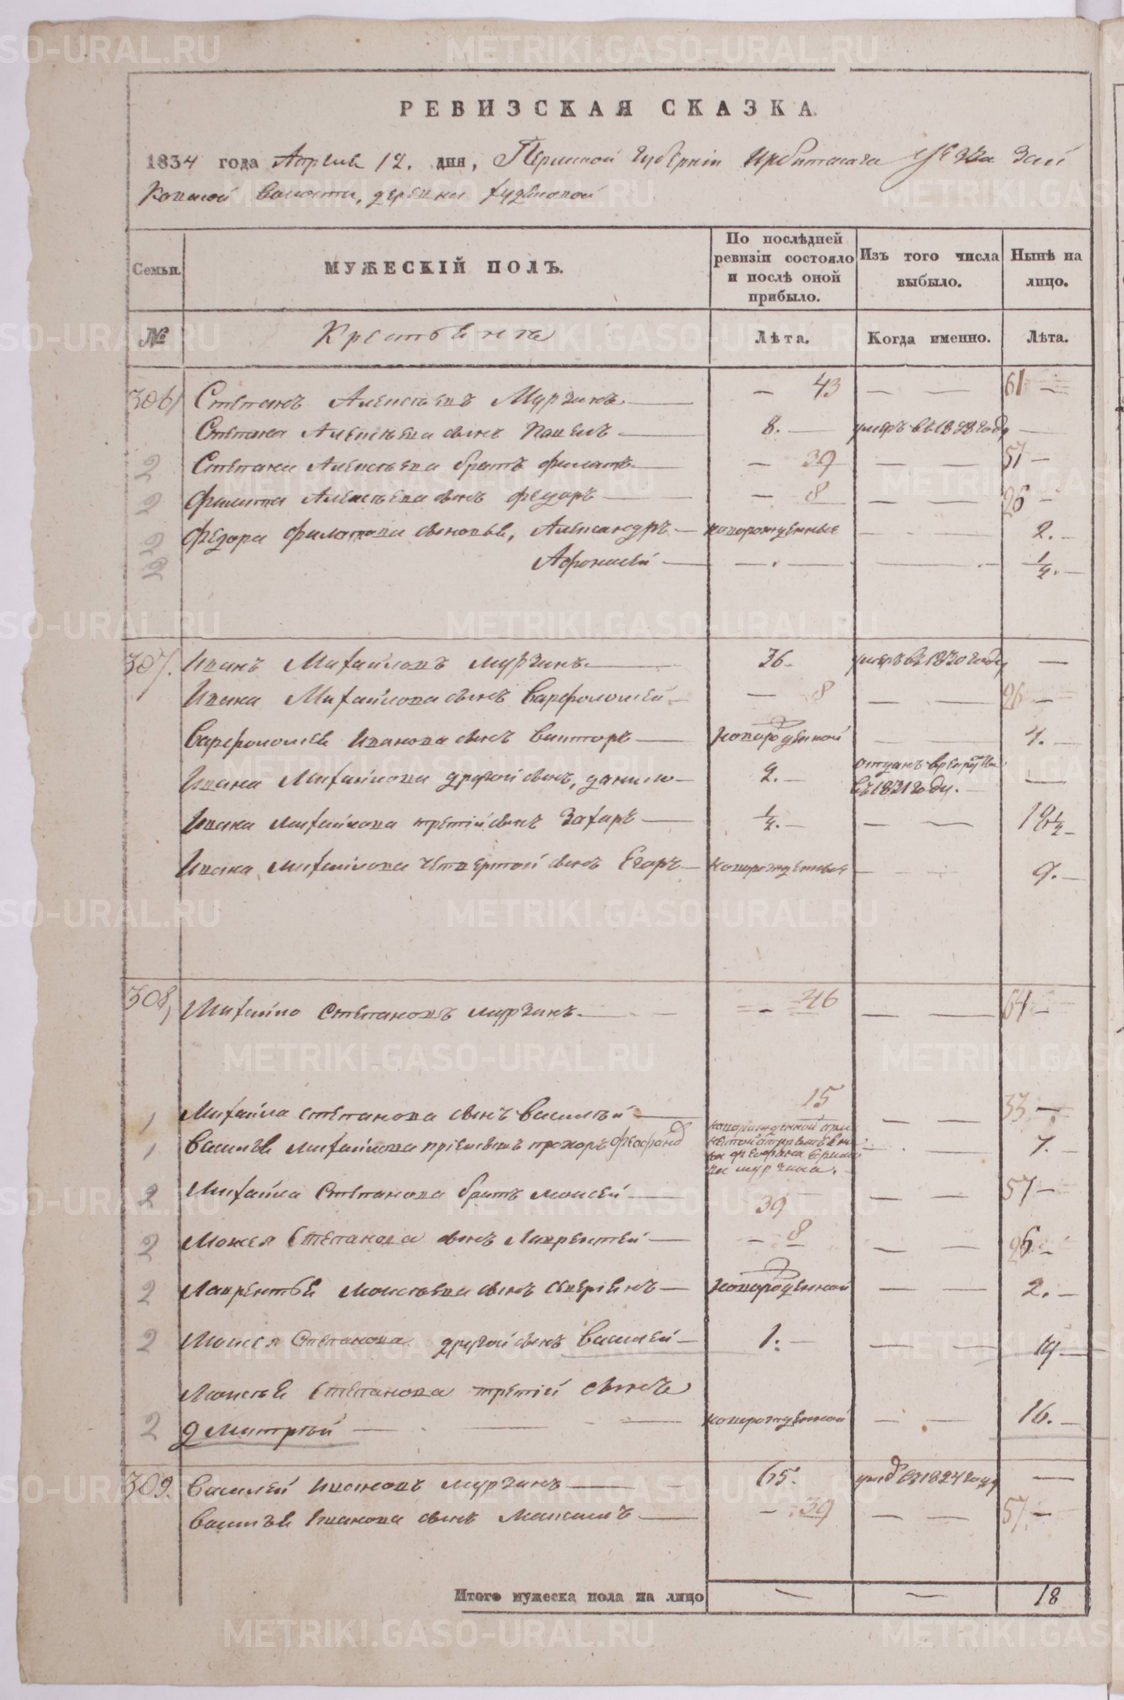 РЕВИЗСКАЯ СКАЗКА.
1834 года Апреля 12. дня, Пермской Губернiи Ирбитскаго Уезда Зай
ковской Волости, деревни
Семьи. МУЖЕСКIЙ ПОЛЪ. По послѣдней ревизiи состояло и послѣ оной прибыло. Изъ того числа выбыло. Нынѣ на лицо.
№ Крестьяне Лѣта. Когда именно. Лѣта.
306 Степанъ Алексѣевъ Мурзинъ 43 61
Степана Алексѣева сынъ Павелъ 8. умеръ въ 1828 году
2 Степана Алексѣева братъ Филатъ 39 57
2 Филата Алексѣева сынъ Федоръ 8 26
2 Федора Филатова сыновья, Александръ новорожденные 2.
2 Афонасей 1/2.
307. Иванъ Михайловъ Мурзинъ 36. умеръ въ 1830 году
Ивана Михайлова сынъ Варфоломей 8 26
Варфоломея Иванова сынъ Викторъ новорожденной 4.
Ивана Михайлова другой сынъ, Данило 2. отданъ въ рекруты въ 1831 году.
Ивана Михайлова третiй сынъ Захаръ 1/2. 18 1/2
Ивана Михайлова четвертой сынъ Егоръ новорожденные 9.
308, Михайло Степановъ Мурзинъ 46 64
1 Михайла Степанова сынъ Василѣй 15 33
1 Василья Михайлова прiемышъ Прохоръ новорожденной 7.
2 Михайла Степанова братъ Моисей 39 57
2 Моисея Степанова сынъ Лаврентей 8 26
2 Лаврентья Моисѣева сынъ Северiянъ новорожденной 2.
2 Моисея Степанова другой сынъ Василей 1. 19
Моисея Степанова третiй сынъ
2 Дмитрѣй новорожденной 16.
309. Василей Ивановъ Мурзинъ 65. въ 1824 году
Василья Иванова сынъ Максимъ 39 57
Итого мужеска пола на лицо 18
METRIKI.GASO-URAL.RU